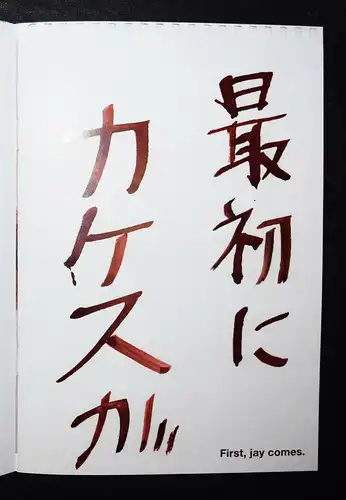 最初に
カケスが
First, jay comes.